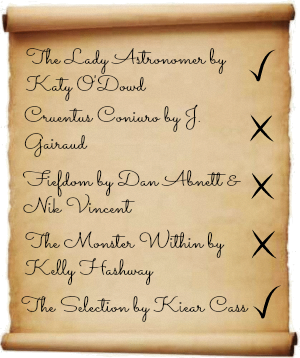 The Lady Astronomer by
Katy O'Dowd
Cruentus Coniuro by J.
Gairaud
Fiefdom by Dan Abnett &
Nik Vincent
The Monster Within by
Kelly Hashway
The Selection by Kiear Cass